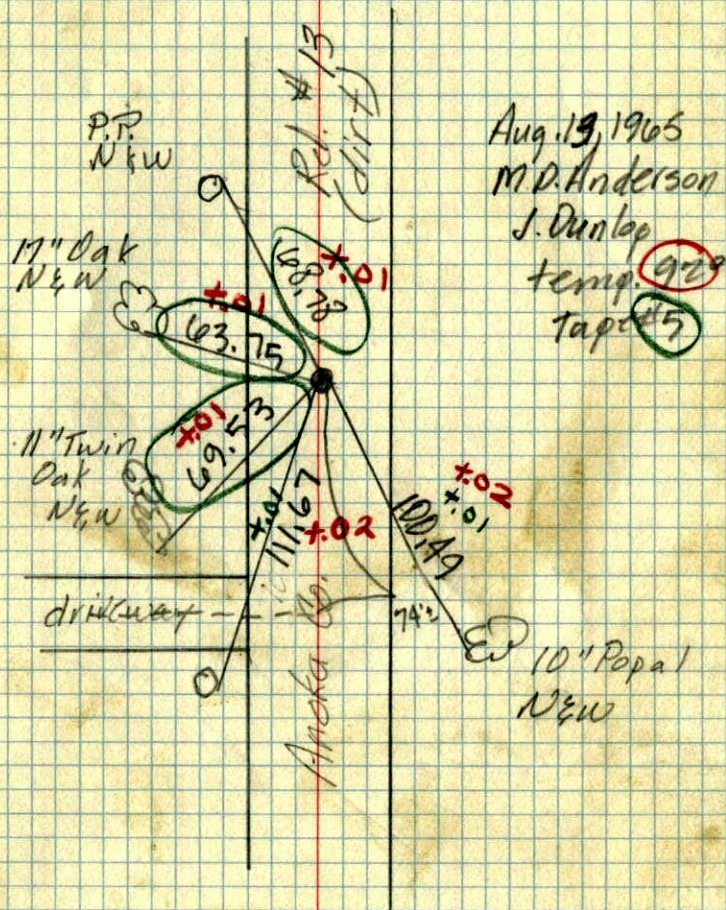 Rd. # 13
(dirt)
P.P.
N & W
Aug. 13, 1965
M.D. Anderson
J. Dunlop
temp. 92°
Tape #5
17" Oak
N & W
+.01
68.78
+.01
63.75
+.01
69.53
11" Twin
Oak
N & W
+.01
111.67
+.02
+.02
+.01
100.49
driveway
74'±
10" Popal
N & W
Anoka Co.